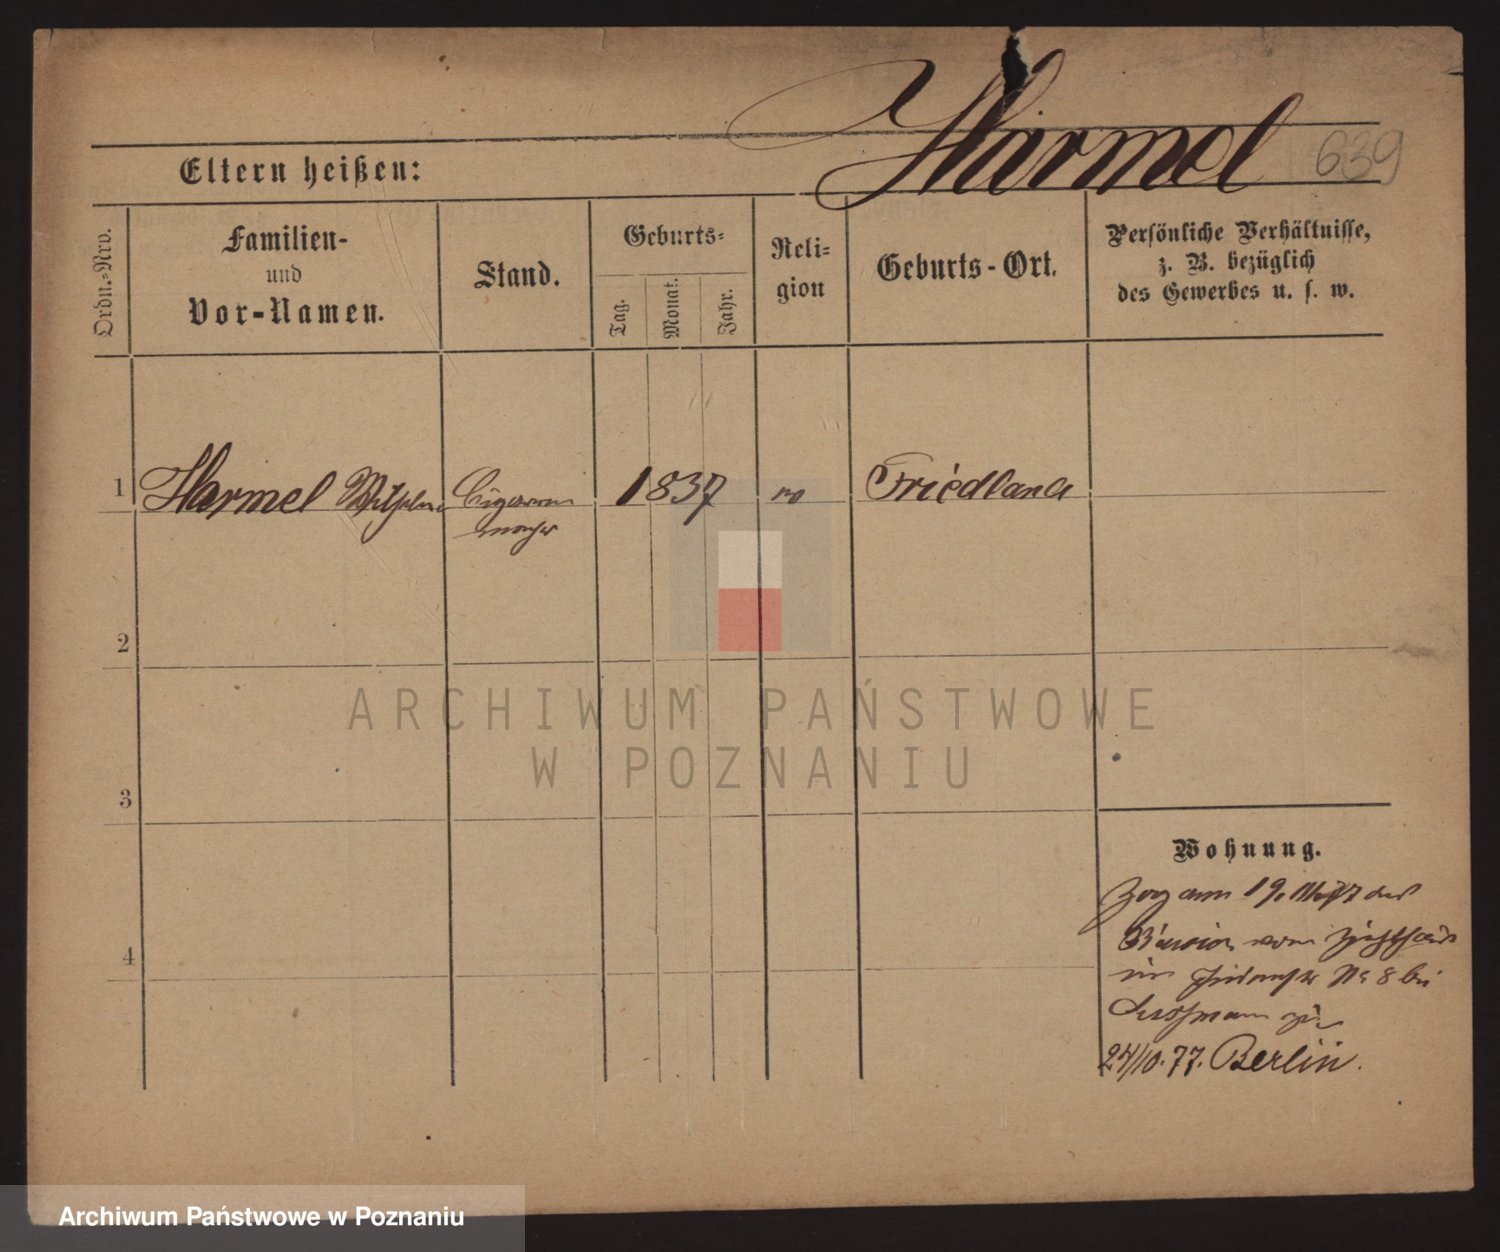 Harmel
639
Eltern heißen:
Ordn.-Nro.
Familien-
und
Vor-Namen.
Stand.
Geburts-
Tag.
Monat.
Jahr.
Reli-
gion
Geburts-Ort.
Persönliche Verhältnisse,
z. B. bezüglich
des Gewerbes u. s. w.
1
Harmel Wilhelm
Cigarren
macher
1837
Friedland
2
3
4
Wohnung.
Zog am 19.
No 8 bei
zu
24/10.77. Berlin.
ARCHIWUM PAŃSTWOWE
W POZNANIU
Archiwum Państwowe w Poznaniu